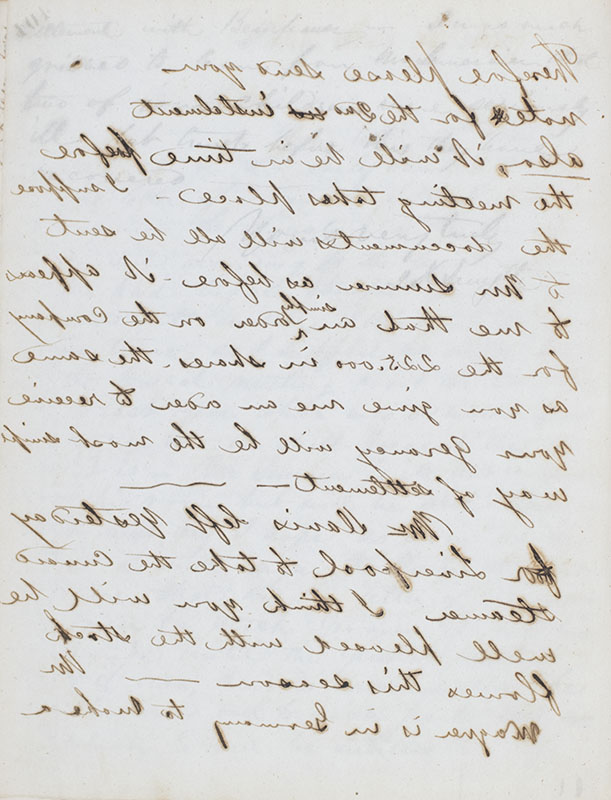 Therefore please send you
notes for the instalment
also, it will be in time before
the meeting takes place - I suppose
the documents will all be sent
to Mr Sumner as before - it appears
to me that an simply order on the Company
for the 225.000 in shares - the same
as you give me an order to receive
your Geraney will be the most simple
way of settlement -
Mr Davis left yesterday
for Liverpool to take the Cunard
steamer I think you will be
well pleased with the stock
flones this season - Mr
Wagner is in Germany to make a